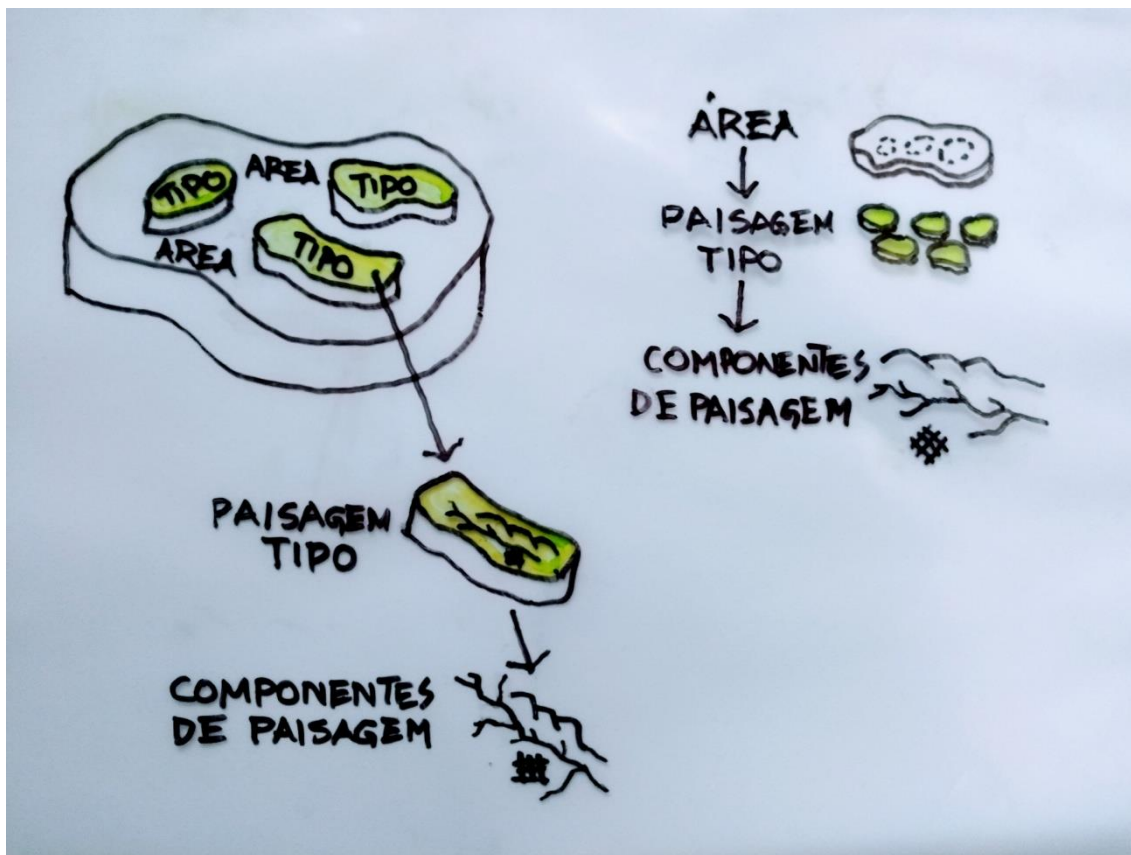 TIPO
AREA
TIPO
AREA
TIPO
PAISAGEM
TIPO
COMPONENTES
DE PAISAGEM
ÁREA
PAISAGEM
TIPO
COMPONENTES
DE PAISAGEM